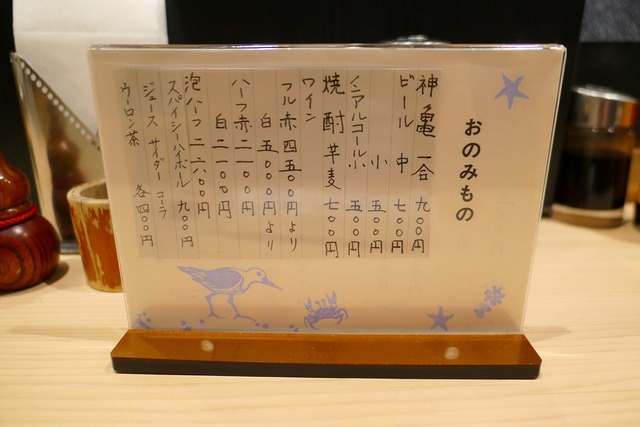 おのみもの
神亀 一合 九〇〇円
ビール 中 七〇〇円
小 五〇〇円
ノンアルコール小 五〇〇円
焼酎 芋麦 七〇〇円
ワイン
フル 赤 四五〇〇円より
白 五〇〇〇円より
ハーフ赤 二一〇〇円
白 二一〇〇円
泡ハーフ 二六〇〇円
スパイシーハイボール 九〇〇円
ジュース サイダー コーラ
ウーロン茶 各四〇〇円